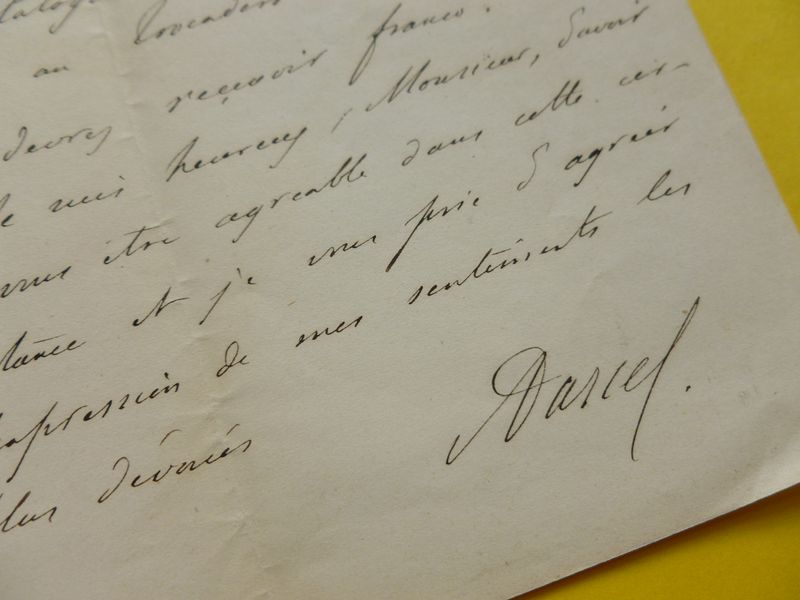 au Trocadéro
devrez recevoir franco.
suis heureux, Monsieur, d'avoir
vous être agréable dans cette cir-
tance et je vous prie d'agréer
expression de mes sentiments les
plus dévoués
ADarcel.